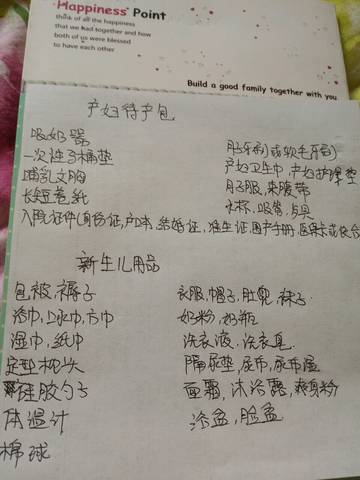 Happiness Point
think of all the happiness
that we had together and how
both of us were blessed
to have each other
Build a good family together with you
产妇待产包
吸奶器
月牙刷(或软毛牙刷)
一次性马桶垫
产妇卫生巾,产妇护理垫
哺乳文胸
月子服,束腹带
长短卷纸
水杯,吸管,勺
入院证件(身份证,户口本,结婚证,准生证,围产手册,医保卡或
新生儿用品
包被,褥子
衣服,帽子,肚兜,袜子
浴巾,口水巾,方巾
奶粉,奶瓶
湿巾,纸巾
洗衣液,洗衣皂
定型枕头
隔尿垫,尿布,尿布湿
硅胶勺子
面霜,沐浴露,爽身粉
体温计
浴盆,脸盆
棉球